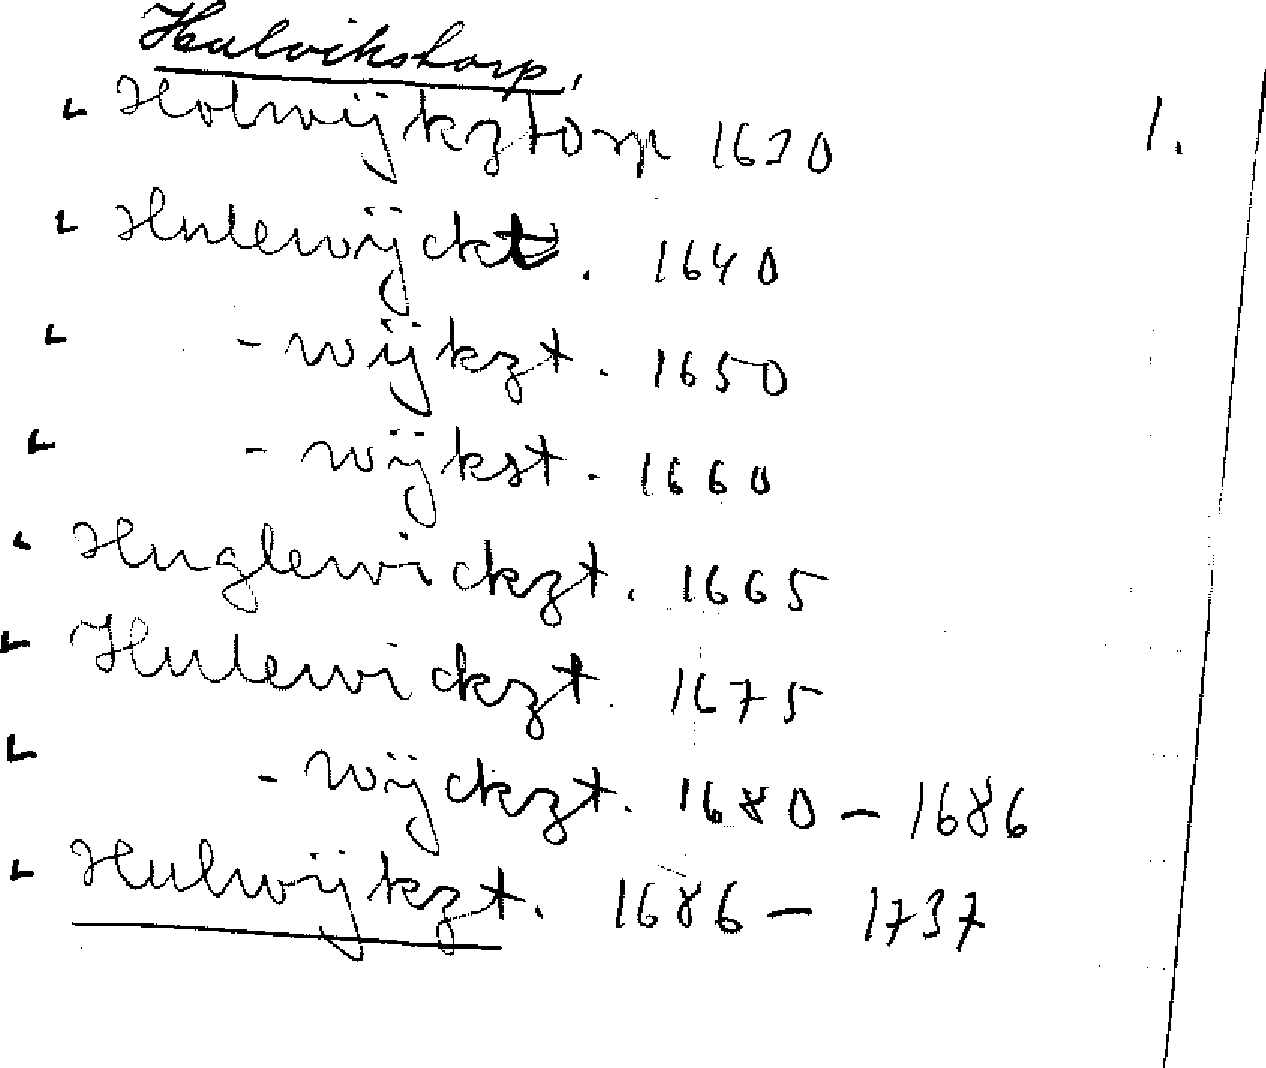 Hulvikstorp,
Holwijkztorp 1630 1.
Hulewijckt. 1640
- wijkzt. 1650
- wijkst. 1660
Huglewickzt. 1665
Hulewickzt. 1675
- wijckzt. 1680 – 1686
Hulwijkzt. 1686 – 1737